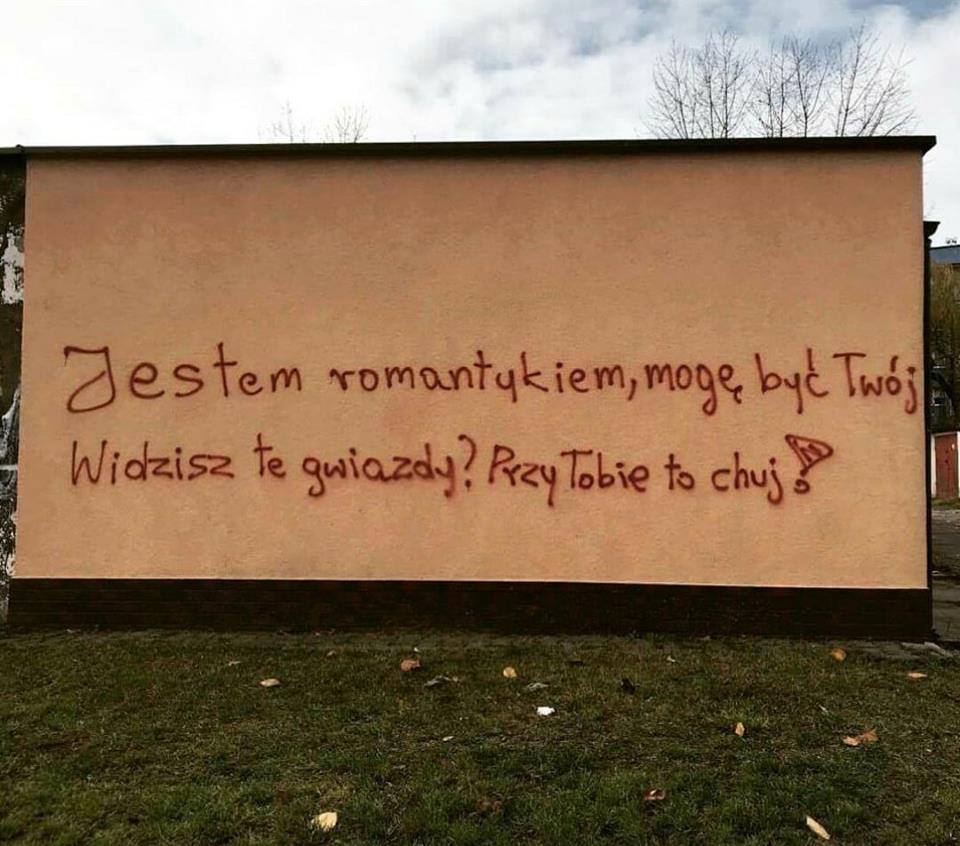 Jestem romantykiem, mogę być Twój
Widzisz te gwiazdy? Przy Tobie to chuj!